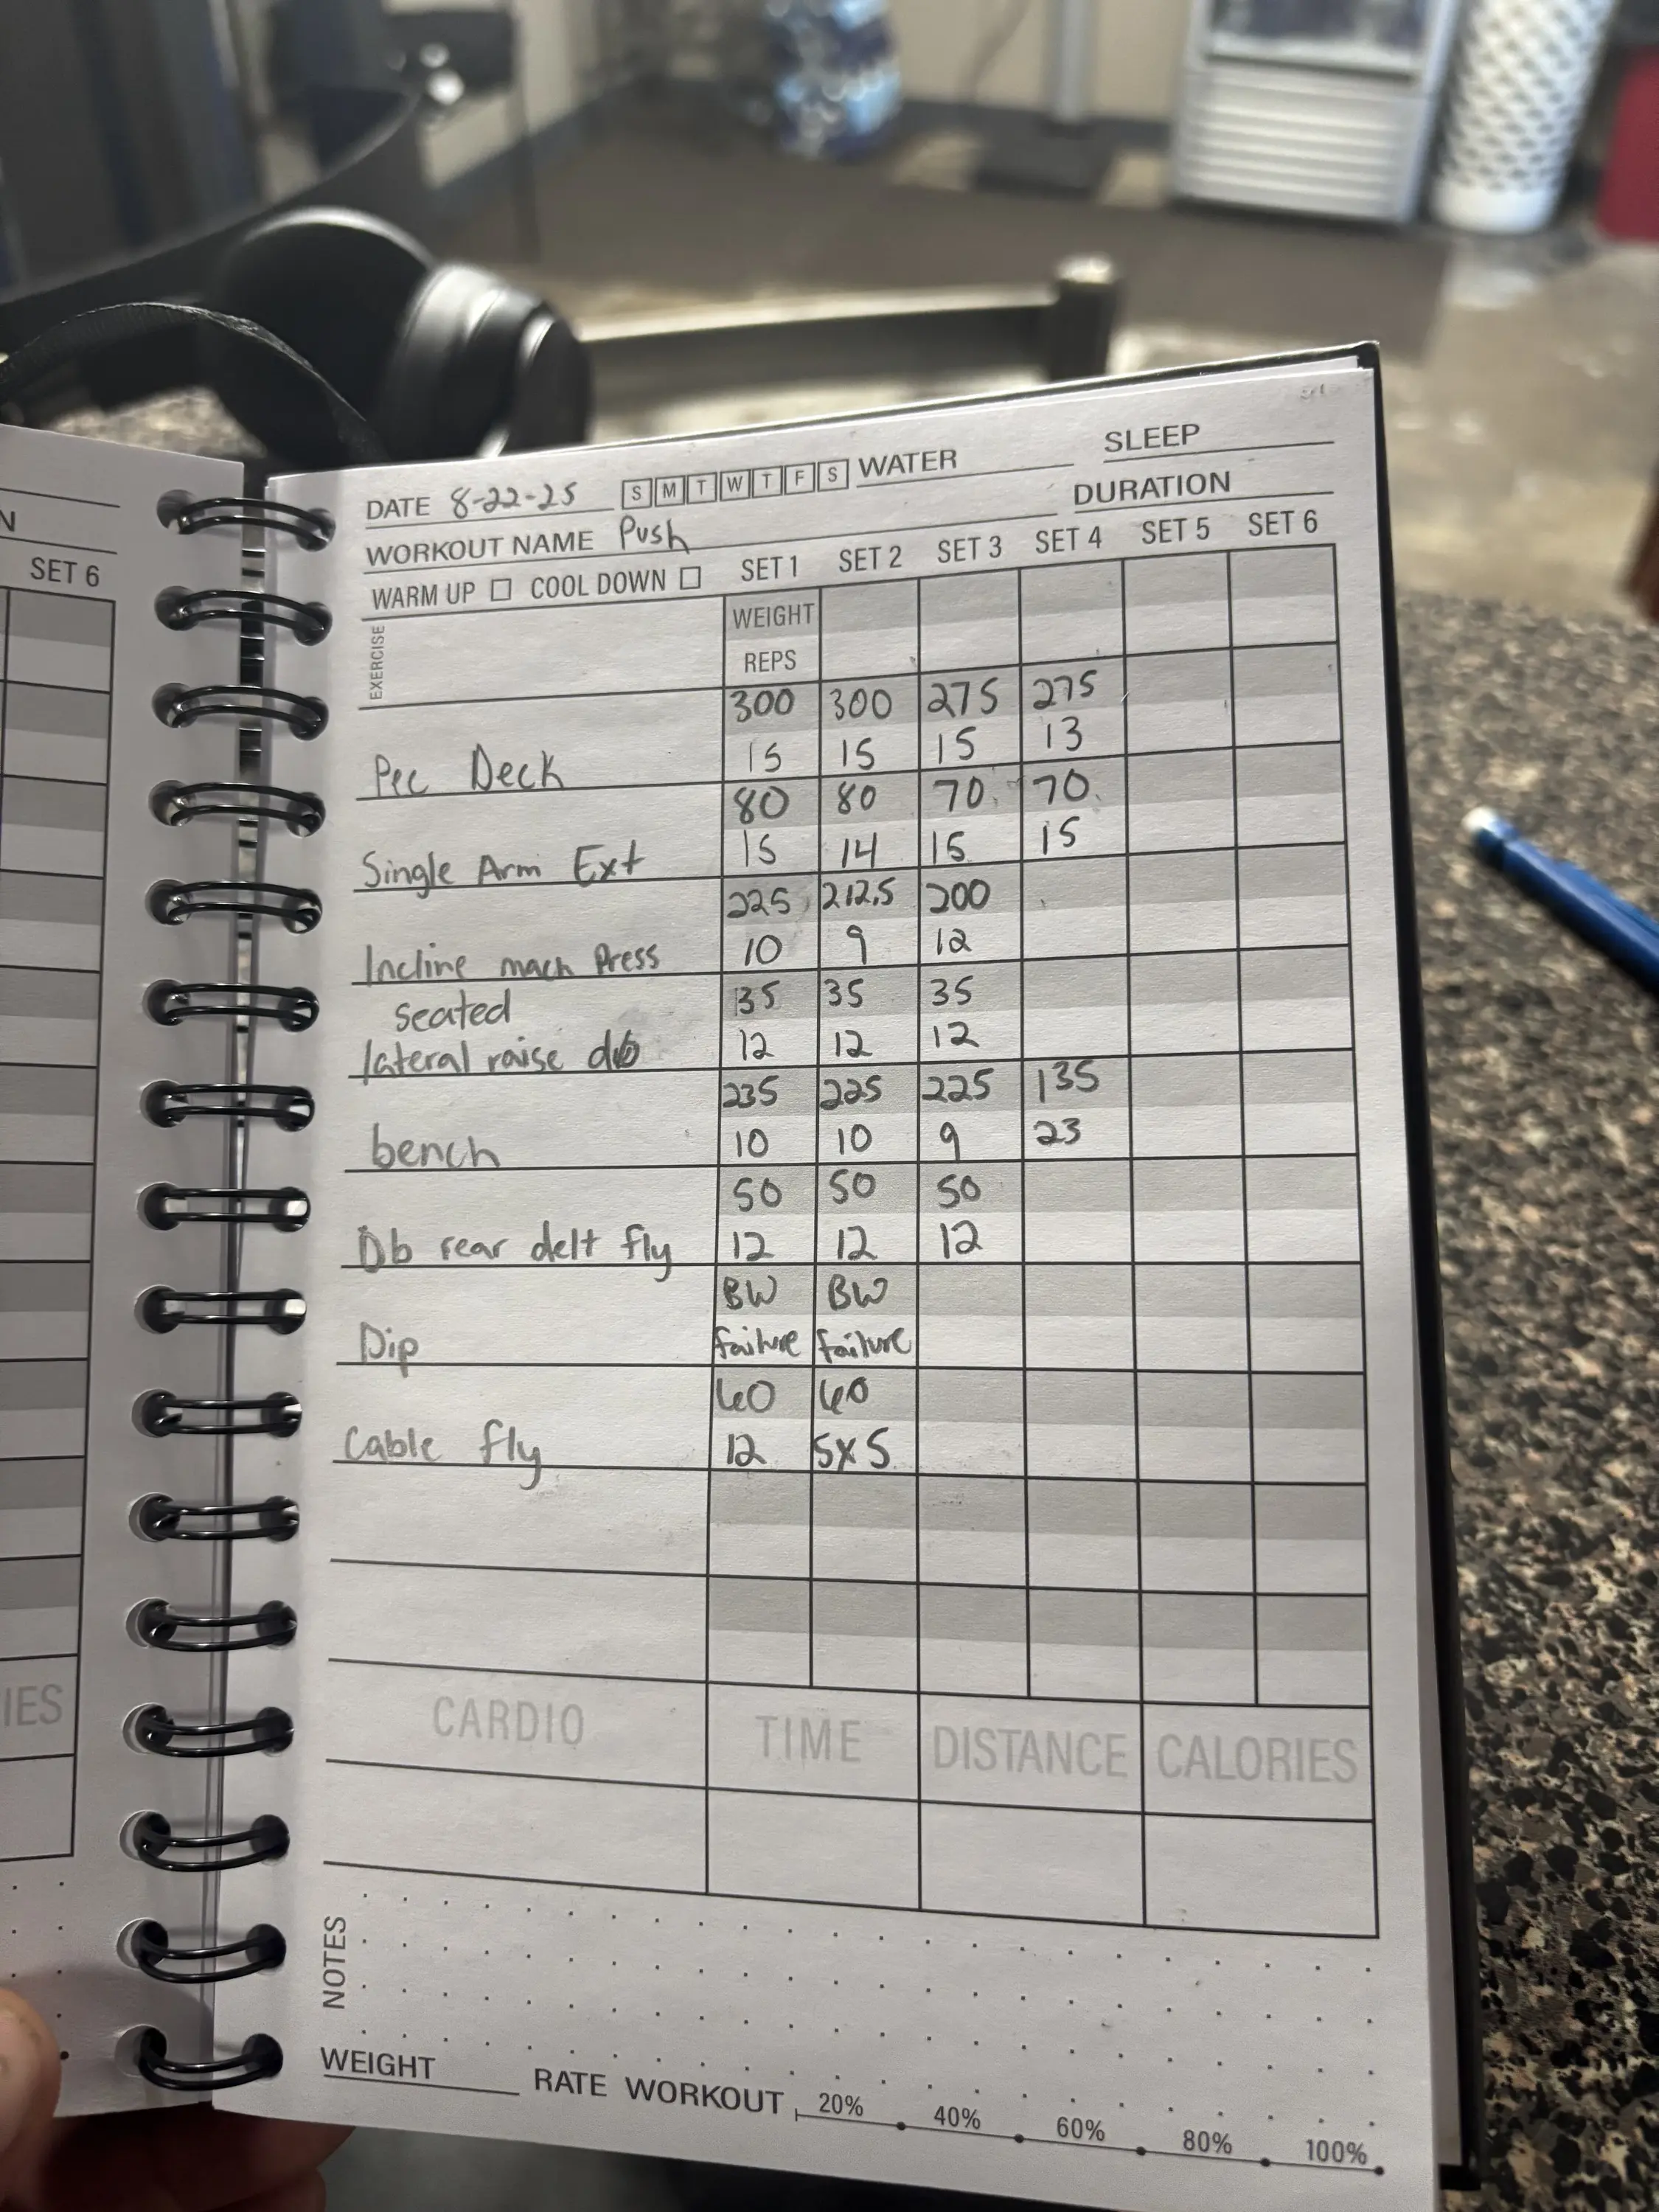 N
SET 6
IES
DATE 8-22-25 S M T W T F S WATER SLEEP
WORKOUT NAME Push DURATION
WARM UP COOL DOWN SET 1 SET 2 SET 3 SET 4 SET 5 SET 6
EXERCISE
WEIGHT
REPS
300 300 275 275
Pec Deck 15 15 15 13
80 80 70 70
Single Arm Ext 15 14 15 15
225 212.5 200
Incline mach Press 10 9 12
seated 35 35 35
lateral raise db 12 12 12
235 225 225 135
bench 10 10 9 23
50 50 50
Db rear delt fly 12 12 12
BW BW
Dip failure failure
60 60
Cable fly 12 5x5
CARDIO TIME DISTANCE CALORIES
NOTES
WEIGHT RATE WORKOUT 20% 40% 60% 80% 100%